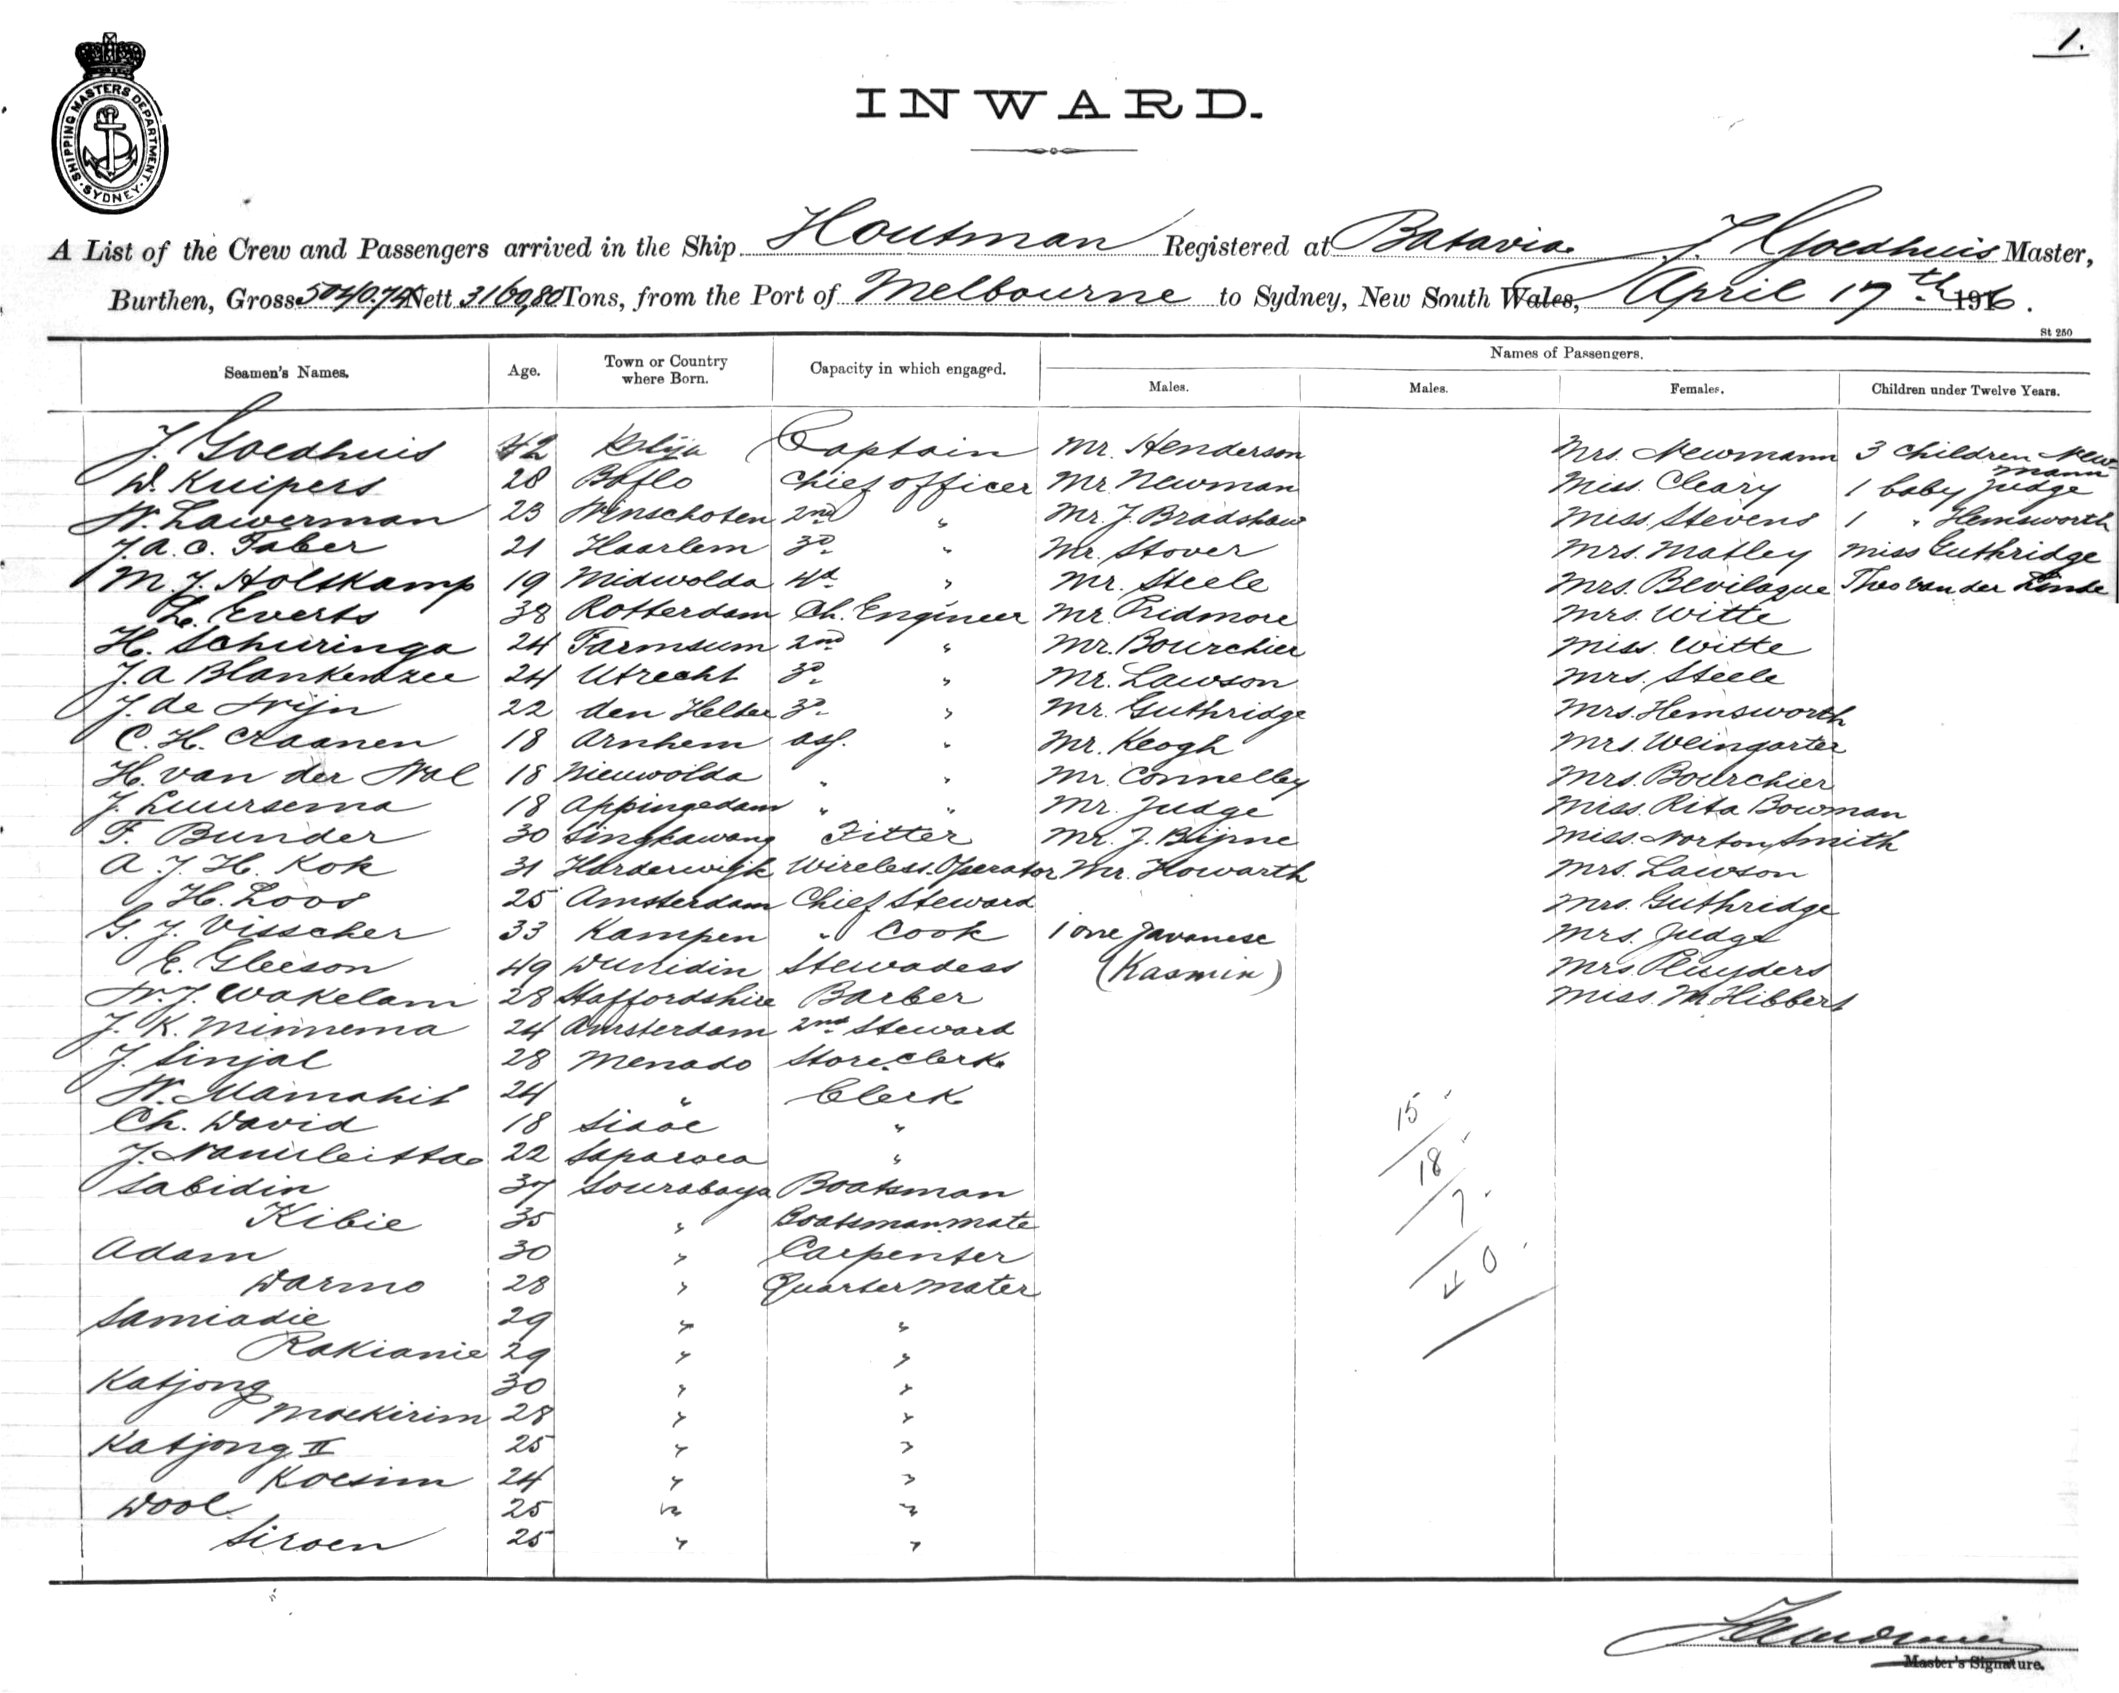 1.
SHIPPING MASTERS DEPARTMENT
· SYDNEY ·
INWARD.
A List of the Crew and Passengers arrived in the Ship Houtman Registered at Batavia J. Goedhuis Master,
Burthen, Gross 5040.74 Nett 3160,80 Tons, from the Port of Melbourne to Sydney, New South Wales, April 17th 1916.
St 250
Seamen's Names. Age. Town or Country where Born. Capacity in which engaged. Names of Passengers.
Males. Males. Females. Children under Twelve Years.
J. Goedhuis 42 Captain Mr. Henderson Mrs. Newmann 3 children Newmann
W. Kuipers 28 Baflo Chief officer Mr Newman Miss. Cleary 1 baby Judge
W. Lawerman 23 Winschoten 2nd " Mr. J. Bradshaw Miss. Stevens 1 " Hemsworth
J. A. C. Faber 21 Haarlem 3d " Mr. Stover Mrs. Matley Miss Guthridge
M J. Holtkamp 19 Midwolda 4d " Mr. Steele Mrs. Bevilaque Theo van der Linde
L. Everts 38 Rotterdam Ch. Engineer Mr Pridmore Mrs. Witte
H. Schuringa 24 Farmsum 2nd " Mr. Bourchier Miss. Witte
J. A Blankenzee 24 Utrecht 3d " Mr. Lawson Mrs. Steele
J. de Wijn 22 den Helder 3d " Mr. Guthridge Mrs. Hemsworth
C. H. Craanen 18 Arnhem ass. " Mr. Keogh Mrs. Weingarter
H. van der Wal 18 Nieuwolda " " Mr. Connelley Mrs. Bourchier
J. Luursema 18 Appingedam " " Mr. Judge Miss. Rita Bowman
F. Bunder 30 Singkawang Fitter Mr. J. Bijne Miss. Norton Smith
A. J. H. Kok 31 Harderwijk Wireless. Operator Mr. Howarth Mrs. Lawson
H. Loos 25 Amsterdam Chief Steward Mrs. Guthridge
G. J. Visscher 33 Kampen " Cook 1 one Javanese Mrs. Judge
E. Gleeson 49 Dunidin Stewadess (Kasmin) Mrs Pluyders
W. J. Wakelam 28 Staffordshire Barber Miss. M Hibbert
J. K. Minnema 24 Amsterdam 2nd Steward
J. Sinjal 28 Menado Store. Clerk
W. Mamahit 24 " Clerk
Ch. David 18 Siaoe "
J. Nanuleitta 22 Saparoea "
Sabidin 37 Sourabaya Boatsman
Kibie 35 " Boatsman. mate
Adam 30 " Carpenter
Warmo 28 " Quartermater
Samiadie 29 " "
Rakianie 29 " "
Katjong 30 " "
Moekirim 28 " "
Katjong II 25 " "
Koesim 24 " "
Wool 25 " "
Siroen 25 " "
15
18
7
40
Master's Signature.